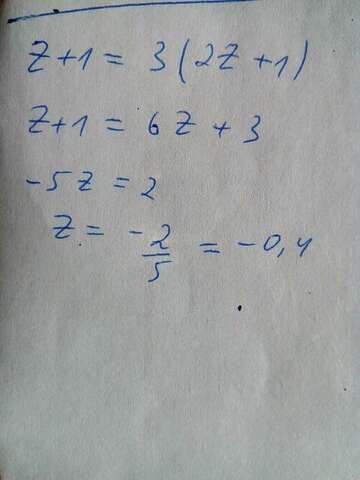 z+1 = 3(2z+1)
z+1 = 6z+3
-5z = 2
z = -2/5 = -0,4